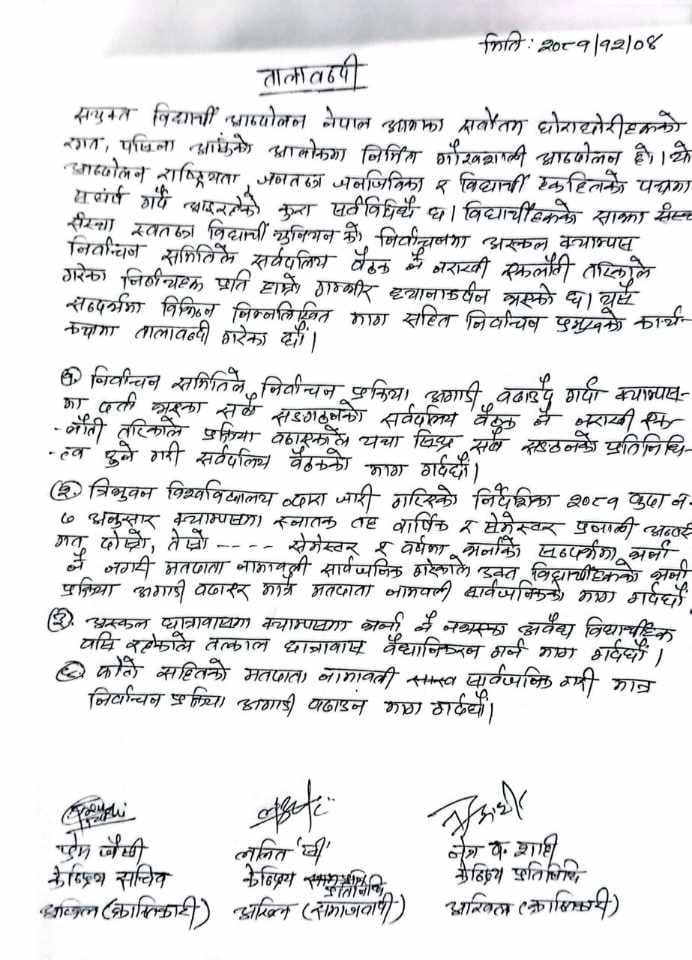 मिति : २०८१/१२/०४
तालाबन्दी
संयुक्त विद्यार्थी आन्दोलन नेपाल आमका सर्वोतम छोराछोरीहरूको
रगत, पसिना आँसुको आलोकमा निर्मित गौरवशाली आन्दोलन हो। यो
आन्दोलन राष्ट्रियता, जनतन्त्र जनजिविका र विद्यार्थी हकहितको पक्षमा
संघर्ष गर्दै आइरहेको कुरा सर्वविधितै छ। विद्यार्थीहरूको साझा संस्था
स्वतन्त्र विद्यार्थी युनियन को निर्वाचनमा अस्कल क्याम्पस
निर्वाचन समितिले सर्वदलिय बैठक नै नराखी एकलौटी तरिकाले
गरेका निर्णयहरू प्रति हाम्रो गम्भीर ध्यानाकर्षन भएको छ। यसै
सन्दर्भमा विभिन्न निम्नलिखित माग सहित निर्वाचन प्रमुखको कार्य-
कक्षमा तालाबन्दी गरेका छौं।
१) निर्वाचन समितिले निर्वाचन प्रक्रिया अगाडी बढाउदै गर्दा क्याम्पस-
मा दर्ता भएका सबै सङगठनको सर्वदलिय बैठक नै नराखी एक-
-लौटी तरिकाले प्रक्रिया बढाएकोले यथा सिघ्र सबै सङठनको प्रतिनिधि-
-त्व हुने गरी सर्वदलिय बैठकको माग गर्दछौं।
२) त्रिभुवन विश्वविद्यालय द्वारा जारी गरिएको निर्देशिका २०८१ बुदा नं.
७ अनुसार क्याम्पसमा स्नातक तह वार्षिक र सेमेस्टर प्रणाली अन्तर्
गत दोस्रो, तेस्रो ---- सेमेस्टर र वर्षमा भर्नाको सन्दर्भमा भर्ना
नै नगरी मतदाता नामावली सार्वजनिक गरेकोले उक्त विद्यार्थीहरूको भर्ना
प्रक्रिया अगाडी बढाएर मात्र मतदाता नामावली सार्वजनिकको माग गर्दछौं
३). अस्कल छात्रावासमा क्याम्पसमा भर्ना नै नभएका अवैध विद्यार्थीहरू
बसि रहेकोले तत्काल छात्रावास वैधानिकरन गर्न माग गर्दछौं।
४) फोटो सहितको मतदाता नामावली सार्वजनिक गरी मात्र
निर्वाचन प्रक्रिया अगाडी बढाउन माग गर्दछौं।
प्रेम जैशी
केन्द्रिय सचिव
अखिल (क्रान्तिकारी)
ललित 'खी'
केन्द्रिय प्रतिनिधि
अखिल (समाजवादी)
नेत्र ब. शाही
केन्द्रिय प्रतिनिधि
अखिल (क्रान्तिकारी)